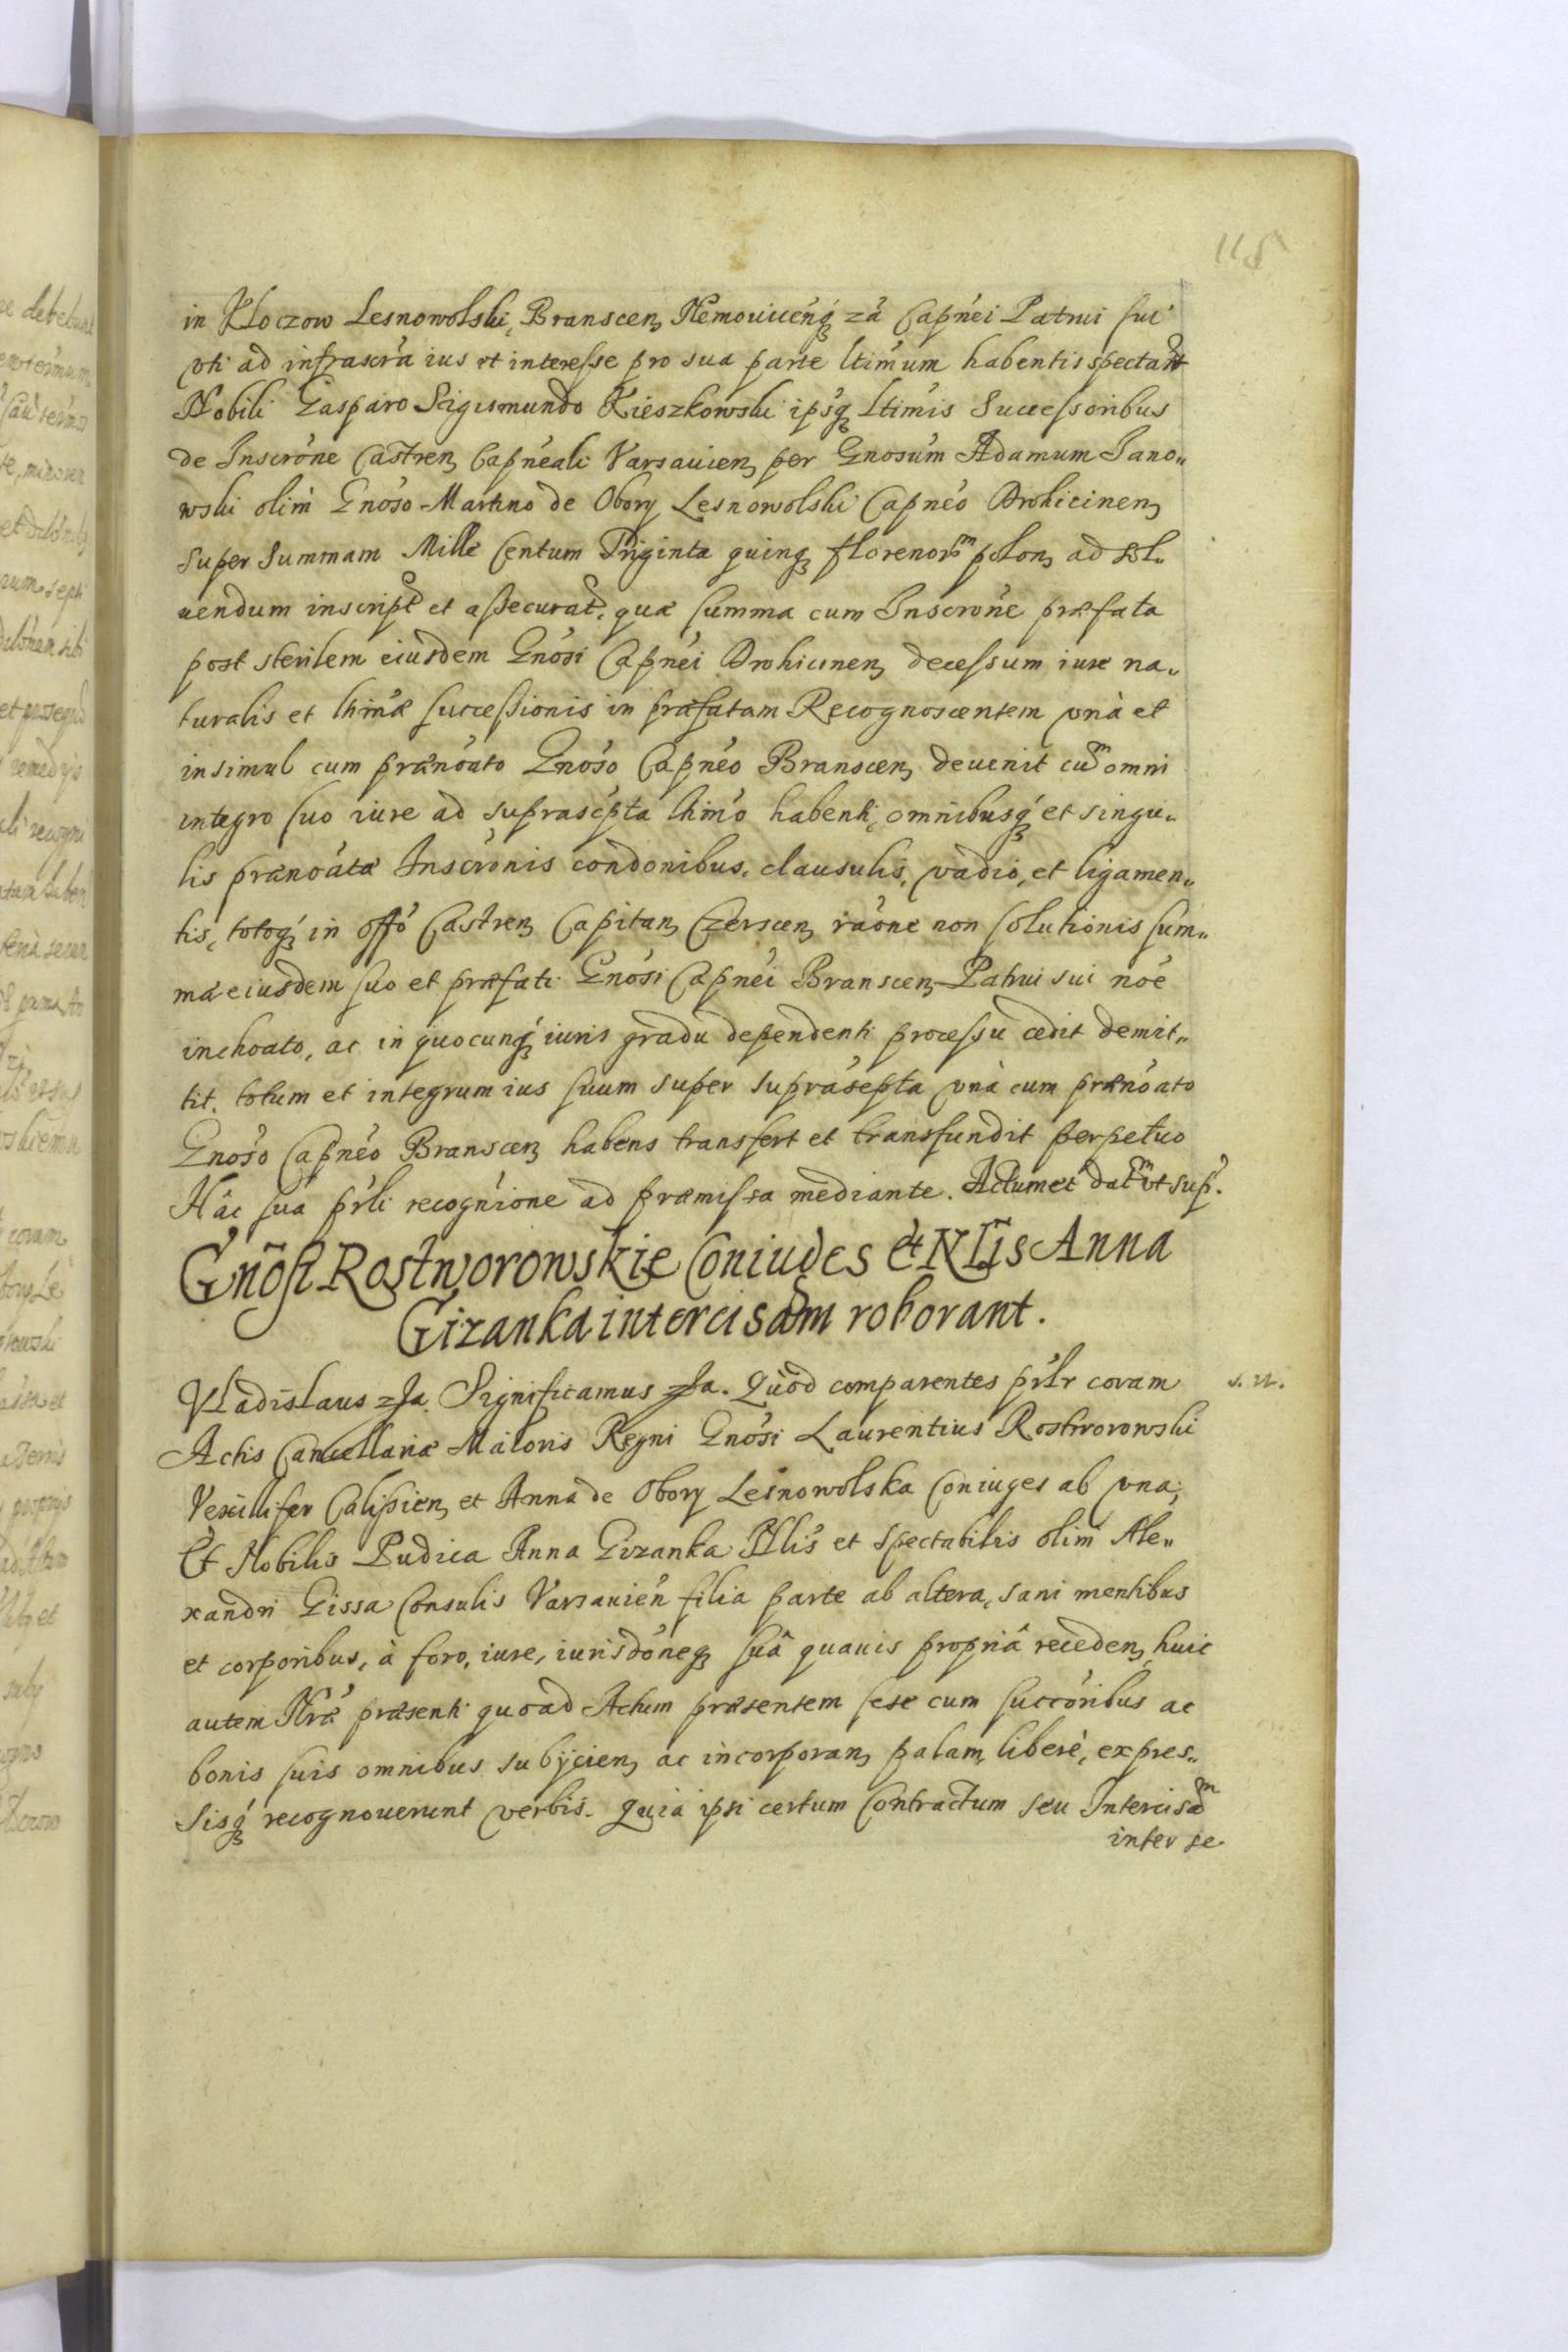 115
in Kloczow Lesnowolski, Branscen, Nemouicenq₃ zã Capnei Patrui sui
vti ad infrascra ius et interesse pro sua parte ltimum habentis spectant
Nobili Gasparo Sigismundo Kieszkowski ipsq₃ ltimis Successoribus
de Inscrone Castren, Capneali Varsauien, per Gnosum Adamum Jano„
wski olim Gnoso Martino de Obory Lesnowolski Capneo Drohicinen,
super Summam Mille Centum Triginta quinq₃ florenorum polon, ad sol„
uendum inscript et assecurat, quæ summa cum Inscrone præfata
post sterilem eiusdem Gnosi Capnei Drohicinen, decessum iure na„
turalis et ltimæ successionis in præfatam Recognoscentem vnà et
insimul cum prænoato Gnoso Capneo Branscen, deuenit cum omni
integro suo iure ad suprascpta ltimo habenti, omnibusq₃ et singu„
lis prænoatæ Inscronis condonibus, clausulis, vadio, et ligamen„
tis, totoq₃ in offo Castren, Capitan, Czerscen, raone non solutionis sum„
mæ eiusdem suo et præfati Gnosi Capnei Branscen, Patrui sui noe
inchoato, ac in quocunq₃ iuris gradu dependenti processu cedit demit„
tit, totum et integrum ius suum super suprascpta vnà cum prænoato
Gnoso Capneo Branscen, habens transfert et transfundit perpetuo
Hâc suâ prsli recognione ad præmissa mediante. Actum et datm vt sup.
Gnosi Rostworowskie Coniuges et Nlis Anna
Gizanka intercisam roborant.
Vladislaus zJa. Significamus zJa. Quod comparentes prslr coram
s. n.
Actis Cancellariæ Maioris Regni Gnosi Laurentius Rostworowski
Vexillifer Calissien, et Anna de Obory Lesnowolska Coniuges ab vna,
Et Nobilis Pudica Anna Gizanka Nlis et Spectabilis olim Ale„
xandri Gissa Consulis Varsauien filia parte ab altera, sani mentibus
et corporibus, à foro, iure, iurisdoneq₃ suâ quauis propriâ receden, huic
autem Nræ præsenti quoad Actum præsentem sese cum succoribus ac
bonis suis omnibus subijcien, ac incorporan, palam, liberè, expres„
sisq₃ recognouerunt verbis. Quia ipsi certum Contractum seu Intercisam
inter se